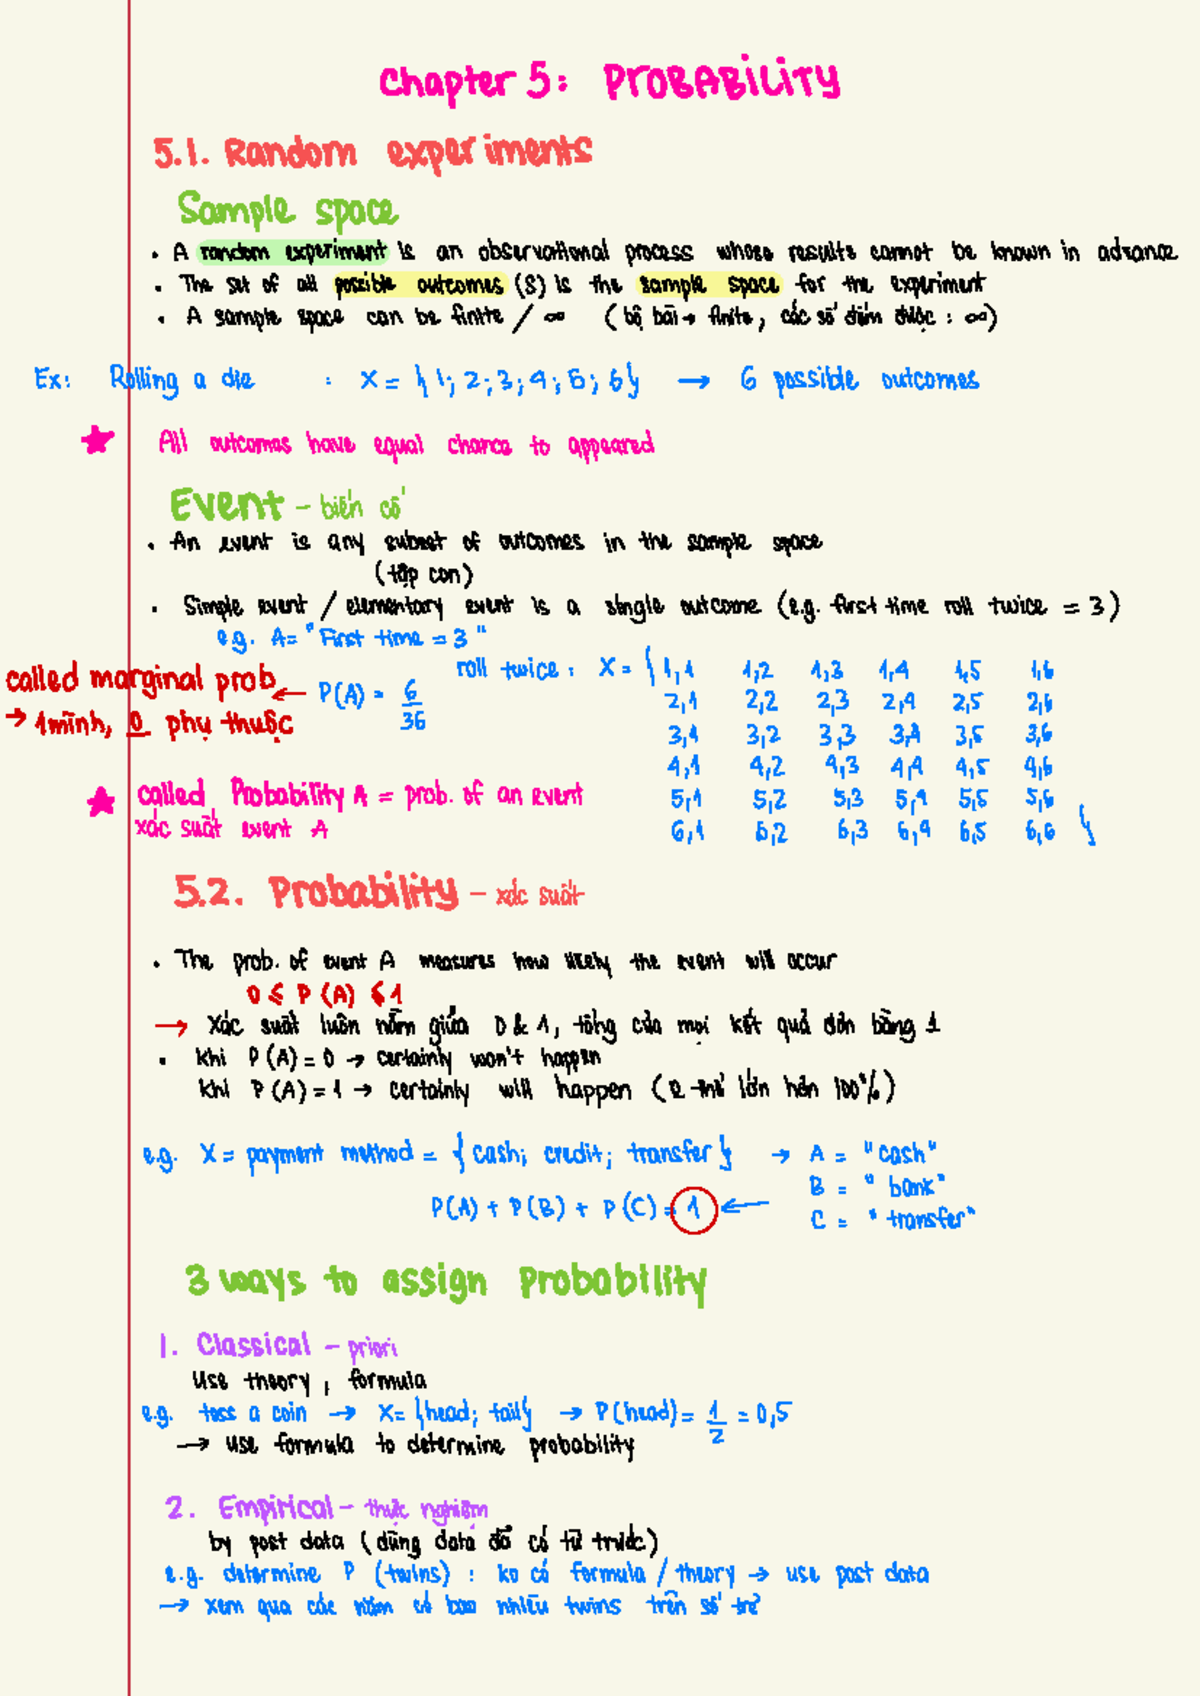 Chapter 5: PROBABILITY
5.1. Random experiments
Sample space
• A random experiment is an observational process whose results cannot be known in advance
• The set of all possible outcomes (S) is the sample space for the experiment
• A sample space can be finite / ∞ (bộ bài → finite, các số đếm được : ∞)
Ex: Rolling a die : X = {1; 2; 3; 4; 5; 6} → 6 possible outcomes
★ All outcomes have equal chance to appeared
Event - biến cố
• An event is any subset of outcomes in the sample space
(tập con)
• Simple event / elementary event is a single outcome (e.g. first time roll twice = 3)
e.g. A= "First time = 3"
roll twice : X = { 1,1 1,2 1,3 1,4 1,5 1,6
called marginal prob ← P(A) = 6/36
2,1 2,2 2,3 2,4 2,5 2,6
→ 1 mình, 0 phụ thuộc
3,1 3,2 3,3 3,4 3,5 3,6
4,1 4,2 4,3 4,4 4,5 4,6
★ called Probability A = prob. of an event
5,1 5,2 5,3 5,4 5,5 5,6
xác suất event A
6,1 6,2 6,3 6,4 6,5 6,6 }
5.2. Probability - xác suất
• The prob. of event A measures how likely the event will occur
0 ≤ P (A) ≤ 1
→ Xác suất luôn nằm giữa 0 & 1, tổng của mọi kết quả đơn bằng 1
• khi P (A) = 0 → certainly won't happen
khi P (A) = 1 → certainly will happen (0 thể lớn hơn 100%)
e.g. X = payment method = { cash; credit; transfer } → A = "cash"
B = "bank"
P(A) + P(B) + P(C) = 1 ←
C = "transfer"
3 ways to assign Probability
1. Classical - priori
Use theory, formula
e.g. toss a coin → X= {head; tail} → P(head) = 1/2 = 0,5
→ use formula to determine probability
2. Empirical - thực nghiệm
by post data (dùng data đã có từ trước)
e.g. determine P (twins) : ko có formula / theory → use post data
→ xem qua các năm có bao nhiêu twins trên số trẻ